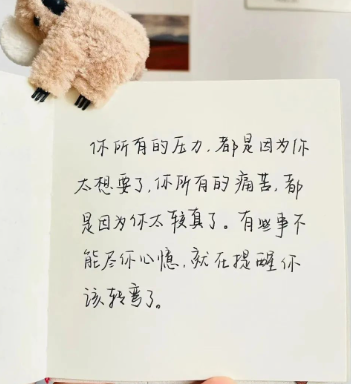 你所有的压力,都是因为你
太想要了,你所有的痛苦,都
是因为你太较真了。有些事不
能尽你心憶,就在提醒你
该转弯了。